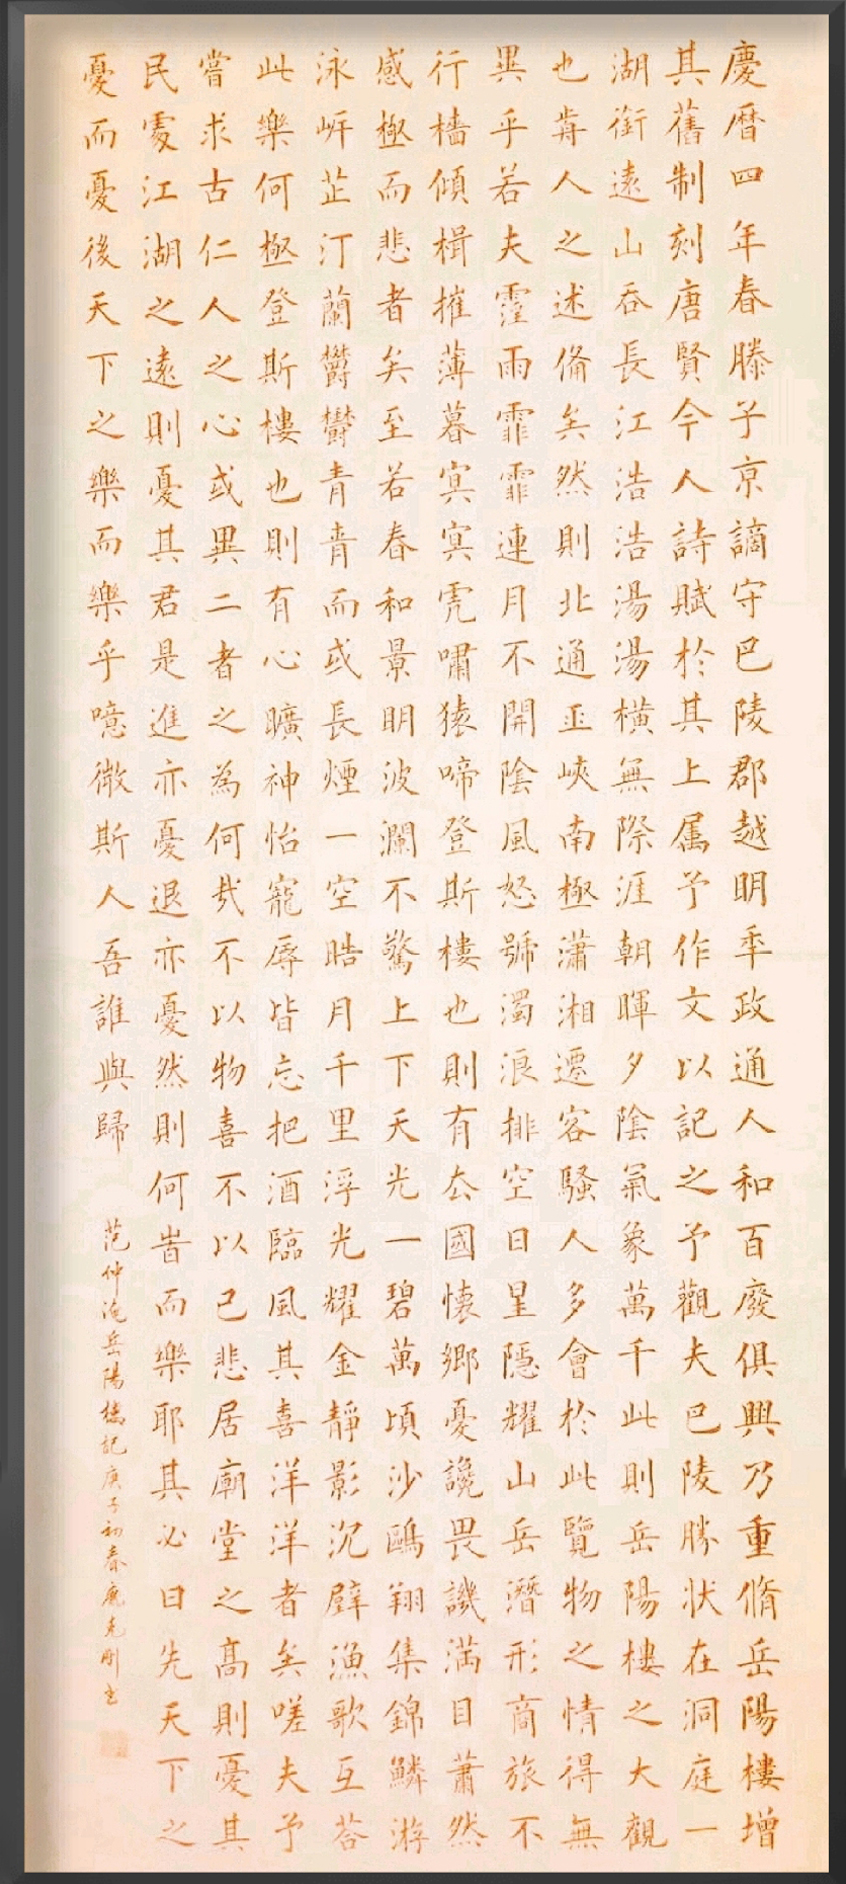 慶曆四年春滕子京謫守巴陵郡越明年政通人和百廢俱興乃重脩岳陽樓增
其舊制刻唐賢今人詩賦於其上属予作文以記之予觀夫巴陵勝状在洞庭一
湖銜遠山吞長江浩浩湯湯橫無際涯朝暉夕陰氣象萬千此則岳陽樓之大觀
也前人之述備矣然則北通巫峽南極瀟湘遷客騷人多會於此覽物之情得無
異乎若夫霪雨霏霏連月不開陰風怒號濁浪排空日星隱耀山岳潛形商旅不
行檣傾楫摧薄暮冥冥虎嘯猿啼登斯樓也則有去國懷鄉憂讒畏譏滿目蕭然
感極而悲者矣至若春和景明波瀾不驚上下天光一碧萬頃沙鷗翔集錦鱗游
泳岸芷汀蘭欝欝青青而或長煙一空皓月千里浮光耀金靜影沉璧漁歌互荅
此樂何極登斯樓也則有心曠神怡寵辱皆忘把酒臨風其喜洋洋者矣嗟夫予
嘗求古仁人之心或異二者之為何哉不以物喜不以己悲居廟堂之高則憂其
民處江湖之遠則憂其君是進亦憂退亦憂然則何旹而樂耶其必曰先天下之
憂而憂後天下之樂而樂乎噫微斯人吾誰與歸
范仲淹岳陽樓記庚子初春鹿克剛書